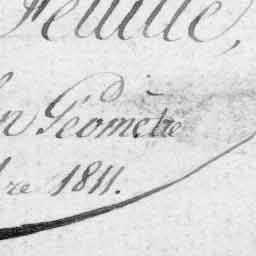 Feuille,
n Géomètre
re 1811.